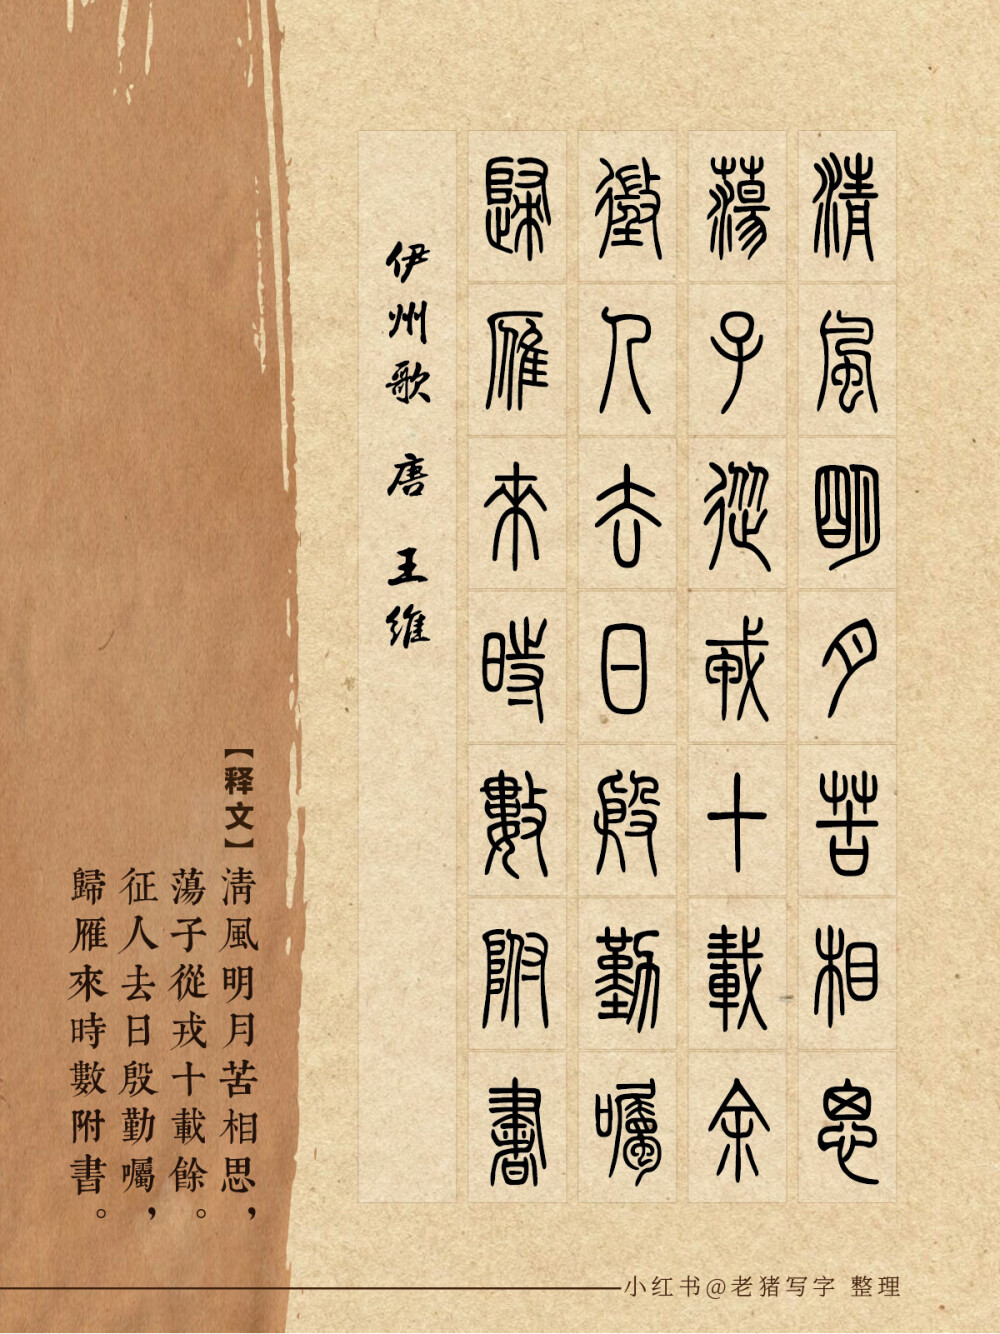 清風明月苦相思
蕩子從戎十載余
徵人去日殷勤囑
歸雁來時數附書
伊州歌 唐 王維
【释文】清風明月苦相思，
蕩子從戎十載餘。
征人去日殷勤囑，
歸雁來時數附書。
小红书@老猪写字 整理